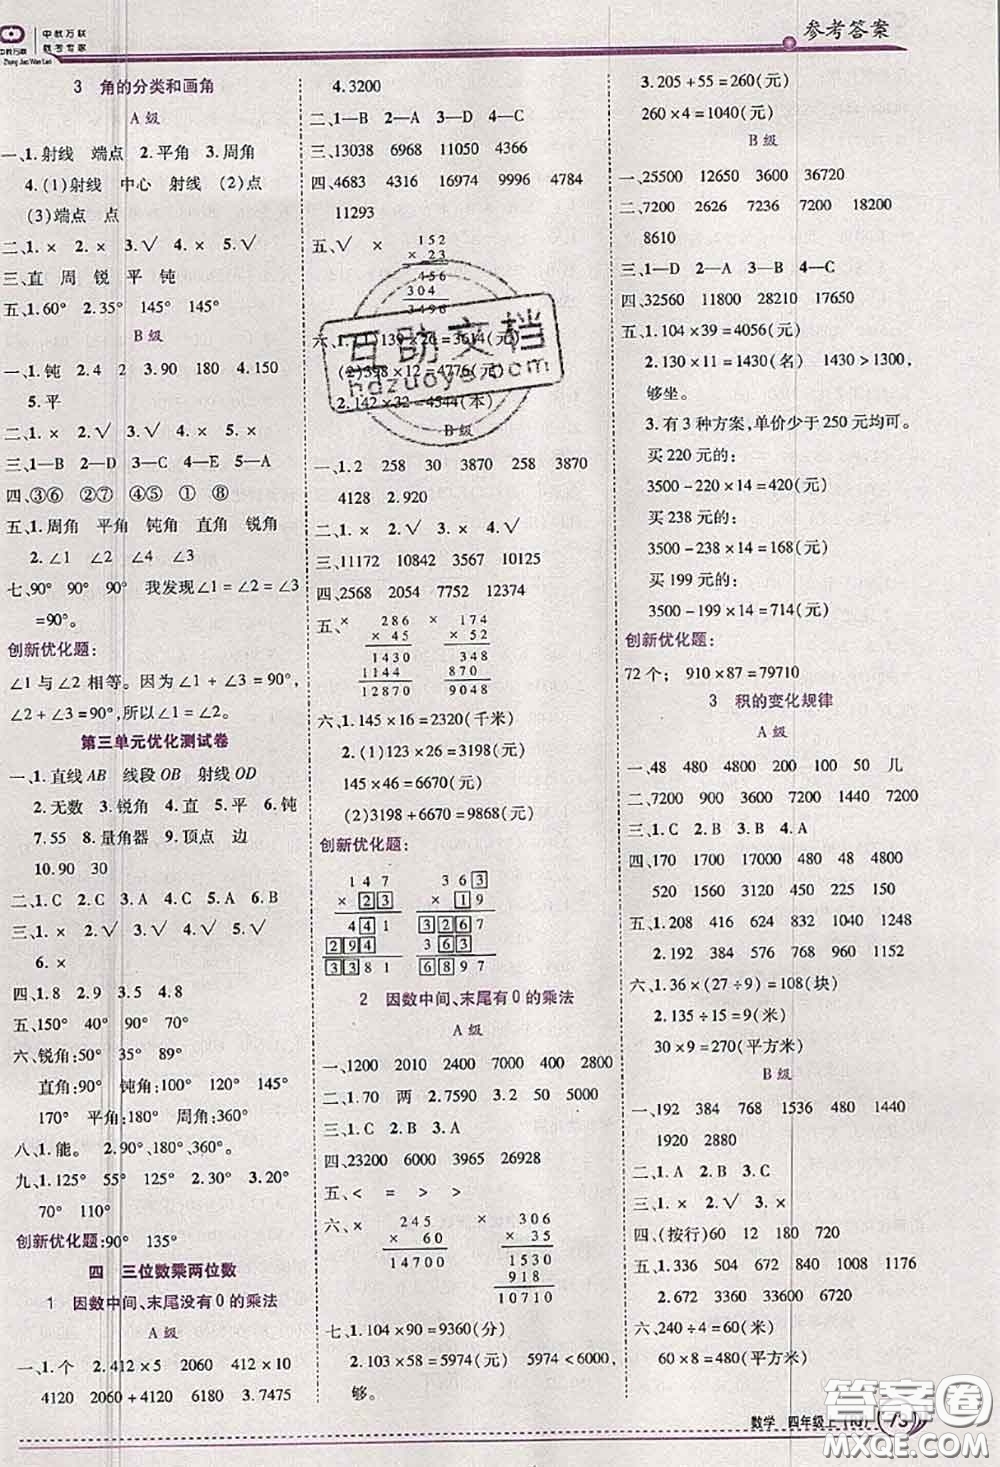 中教万联
教考专家
中教万联
Zhong Jiao Wan Lian
参考答案
3 角的分类和画角
A 级
一、1.射线 端点 2.平角 3.周角
4.(1)射线 中心 射线 (2)点
(3)端点 点
二、1.× 2.× 3.√ 4.× 5.√
三、直 周 锐 平 钝
五、1.60° 2.35° 145° 145°
B 级
一、1.钝 2.4 2 3.90 180 4.150
5.平
二、1.× 2.√ 3.√ 4.× 5.×
三、1—B 2—D 3—C 4—E 5—A
四、③⑥ ②⑦ ④⑤ ① ⑧
五、1.周角 平角 钝角 直角 锐角
2.∠1 ∠2 ∠4 ∠3
七、90° 90° 90° 我发现∠1=∠2=∠3
=90°。
创新优化题:
∠1与∠2相等。因为∠1+∠3=90°,
∠2+∠3=90°,所以∠1=∠2。
第三单元优化测试卷
一、1.直线AB 线段OB 射线OD
2.无数 3.锐角 4.直 5.平 6.钝
7.55 8.量角器 9.顶点 边
10.90 30
二、1.C 2.C 3.A 4.C 5.A 6.B
三、1.× 2.√ 3.√ 4.√ 5.√
6.×
四、1.8 2.9 3.5 4.8
五、150° 40° 90° 70°
六、锐角:50° 35° 89°
直角:90° 钝角:100° 120° 145°
170° 平角:180° 周角:360°
八、1.能。 2.90°、180°、360°。
九、1.125° 55° 125° 2.30° 3.20°
70° 110°
创新优化题:90° 135°
四 三位数乘两位数
1 因数中间、末尾没有0的乘法
A 级
一、1.个 2.412×5 2060 412×10
4120 2060+4120 6180 3.7475
4.3200
二、1—B 2—A 3—D 4—C
三、13038 6968 11050 4366
四、4683 4316 16974 9996 4784
11293
五、√ × 152
× 23
456
304
3496
六、1.(1)139×26=3614(元)
(2)398×12=4776(元)
2.142×32=4544(本)
B 级
一、1.2 258 30 3870 258 3870
4128 2.920
二、1.× 2.√ 3.× 4.√
三、11172 10842 3567 10125
四、2568 2054 7752 12374
五、× 286 × 174
× 45 × 52
1430 348
1144 870
12870 9048
六、1.145×16=2320(千米)
2.(1)123×26=3198(元)
145×46=6670(元)
(2)3198+6670=9868(元)
创新优化题:
147 363
× 23 × 19
441 3267
294 363
3381 6897
2 因数中间、末尾有0的乘法
A 级
一、1200 2010 2400 7000 400 2800
二、1.70 两 2.7590 3.2 50 5000
三、1.C 2.B 3.A
四、23200 6000 3965 26928
五、< = > >
六、× 245 × 306
× 60 × 35
14700 1530
918
10710
七、1.104×90=9360(分)
2.103×58=5974(元) 5974<6000,
够。
3.205+55=260(元)
260×4=1040(元)
B 级
一、25500 12650 3600 36720
二、7200 2626 7236 7200 18200
8610
三、1—D 2—A 3—B 4—C
四、32560 11800 28210 17650
五、1.104×39=4056(元)
2.130×11=1430(名) 1430>1300,
够坐。
3.有3种方案,单价少于250元均可。
买220元的:
3500-220×14=420(元)
买238元的:
3500-238×14=168(元)
买199元的:
3500-199×14=714(元)
创新优化题:
72个; 910×87=79710
3 积的变化规律
A 级
一、48 480 4800 200 100 50 几
二、7200 900 3600 7200 1440 7200
三、1.C 2.B 3.B 4.A
四、170 1700 17000 480 48 4800
520 1560 312 5200 156
五、1.208 416 624 832 1040 1248
2.192 384 576 768 960 30
六、1.36×(27÷9)=108(块)
2.135÷15=9(米)
30×9=270(平方米)
B 级
一、192 384 768 1536 480 1440
1920 2880
二、1.A 2.B 3.C
三、1.× 2.√ 3.×
四、(按行)60 12 180 720
五、1.336 504 588 840 1008 1176
2.672 3360 33600 6720
六、240÷4=60(米)
60×8=480(平方米)
数学 四年级上(RJ) 73
互助文档
hdzuoye.com
答案圈
MXQE.COM